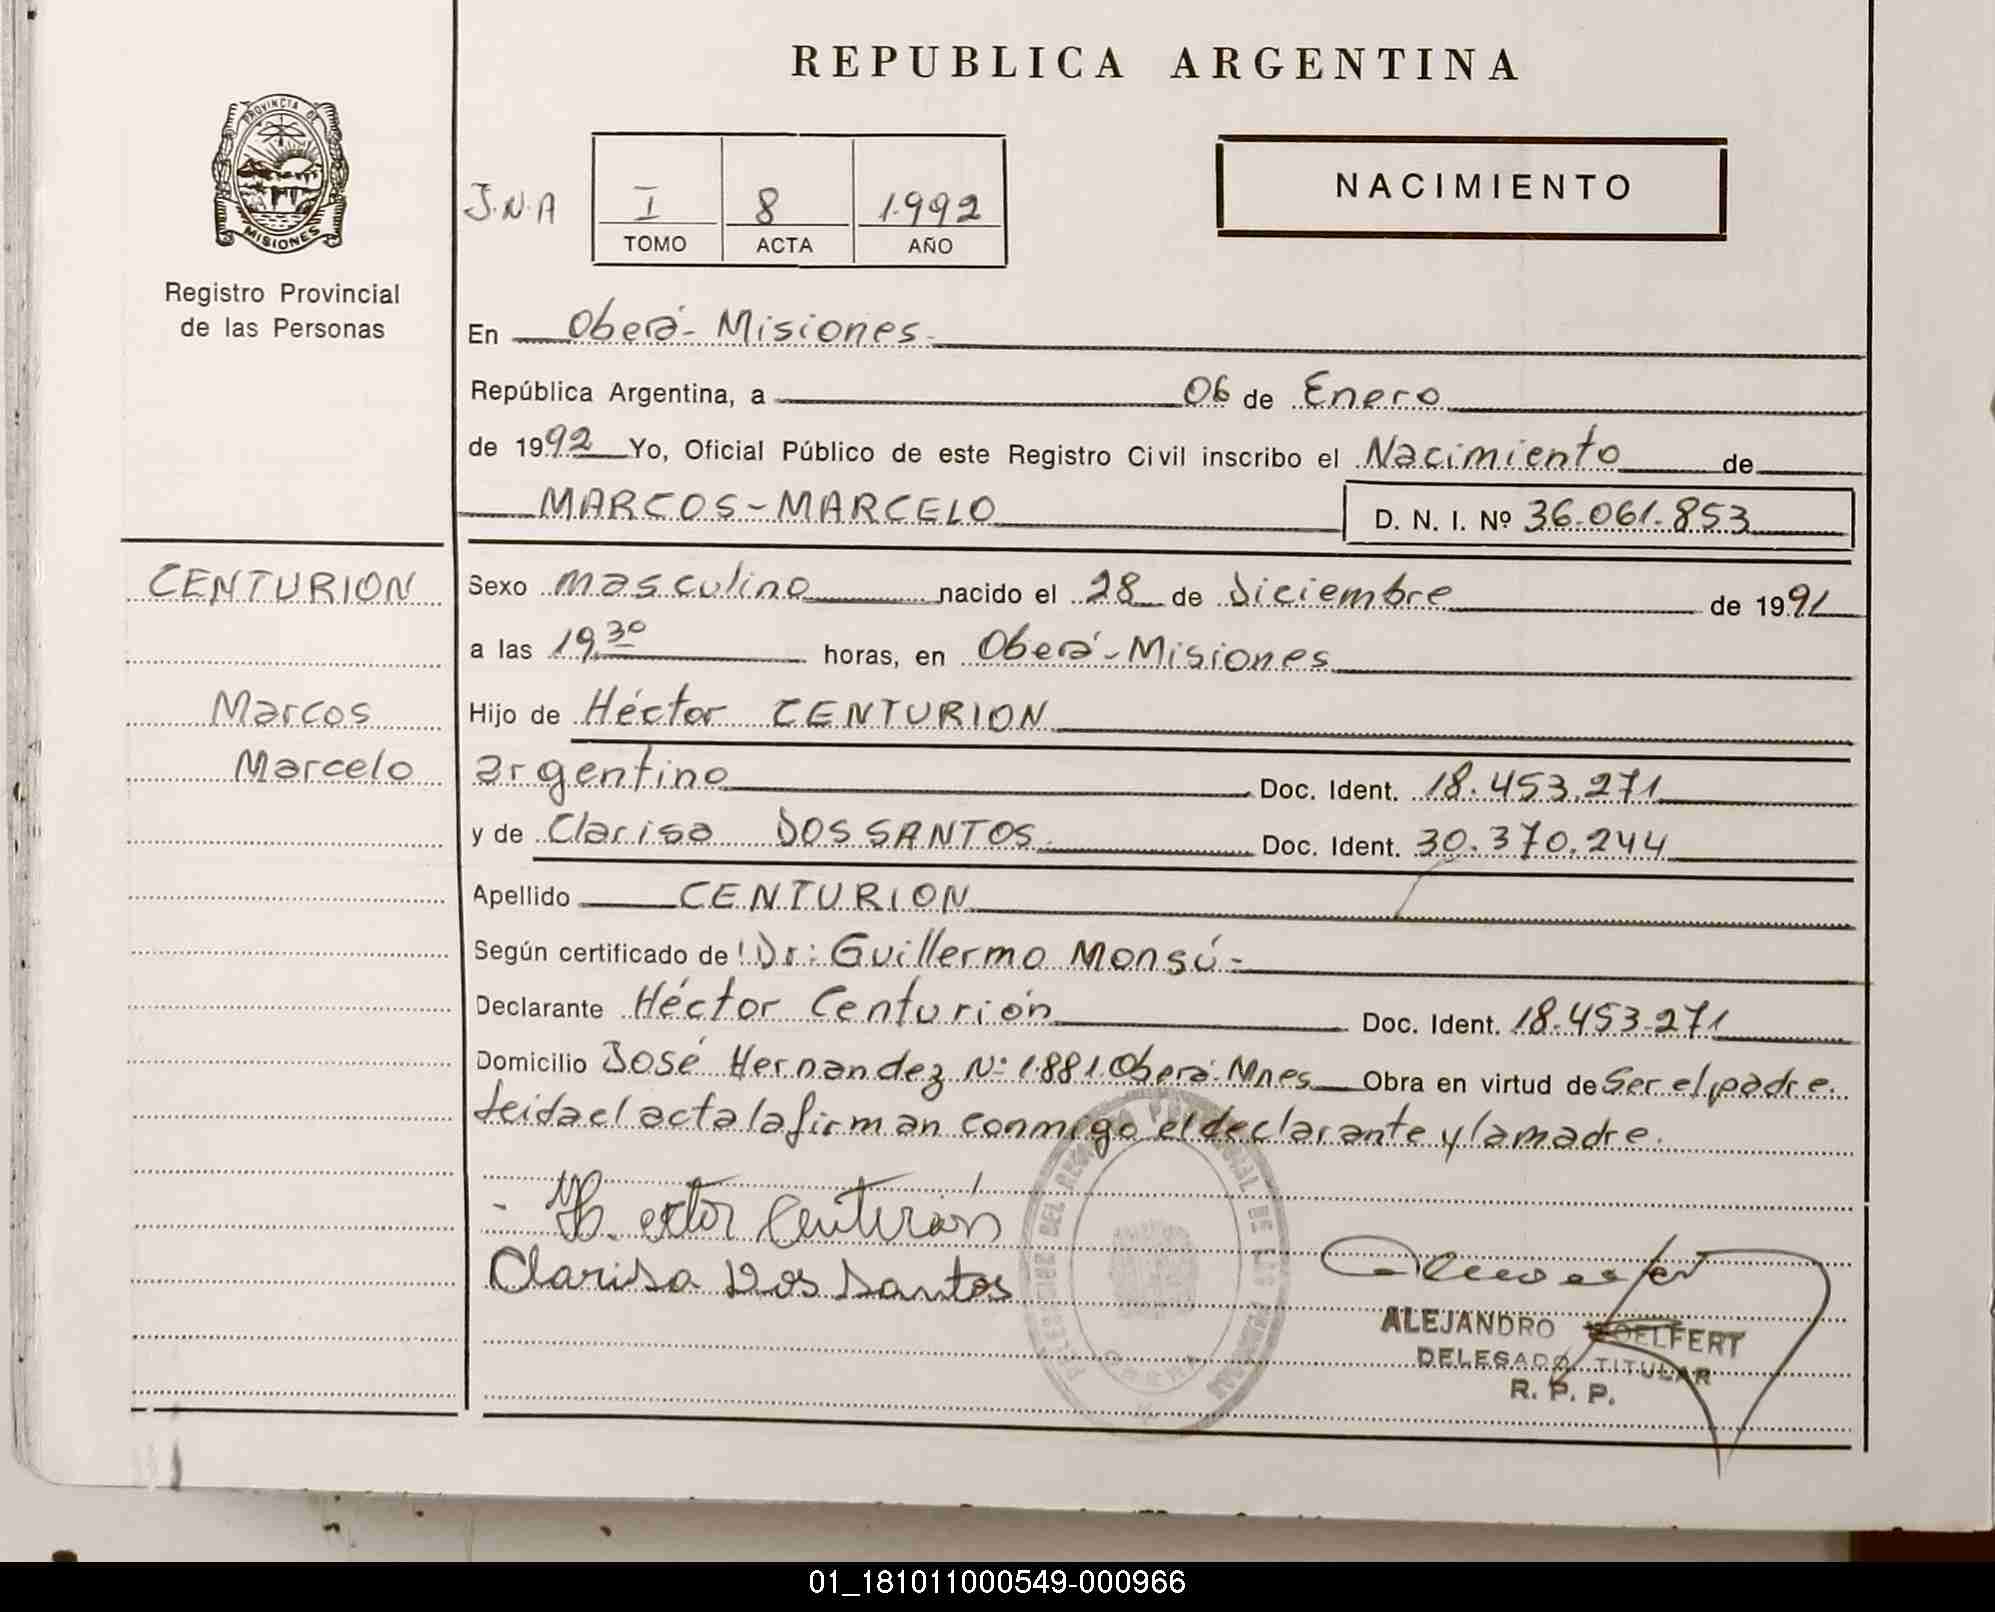 REPUBLICA ARGENTINA
PROVINCIA DE
MISIONES
Registro Provincial
de las Personas
J.N.A
I 8 1.992
TOMO ACTA AÑO
NACIMIENTO
En Oberá - Misiones.
República Argentina, a 06 de Enero
de 1992 Yo, Oficial Público de este Registro Civil inscribo el Nacimiento de
MARCOS - MARCELO D. N. I. Nº 36.061.853
CENTURION
Marcos
Marcelo
Sexo masculino nacido el 28 de diciembre de 1991
a las 19,30 horas, en Oberá - Misiones
Hijo de Héctor CENTURION
argentino Doc. Ident. 18.453.271
y de Clarisa DOS SANTOS. Doc. Ident. 30.370.244
Apellido CENTURION
Según certificado de Dr: Guillermo Monsú -
Declarante Héctor Centurión Doc. Ident. 18.453.271
Domicilio José Hernandez Nº 1.881 Oberá - Mnes Obra en virtud de Ser el padre.
Leida el acta la firman conmigo el declarante y la madre.
- Hector Centurión
Clarisa Dos Santos
DEL REGISTRO PROVINCIAL DE LAS PERSONAS
OBERA
ALEJANDRO WOELFERT
DELEGADO TITULAR
R. P. P.
01_181011000549-000966